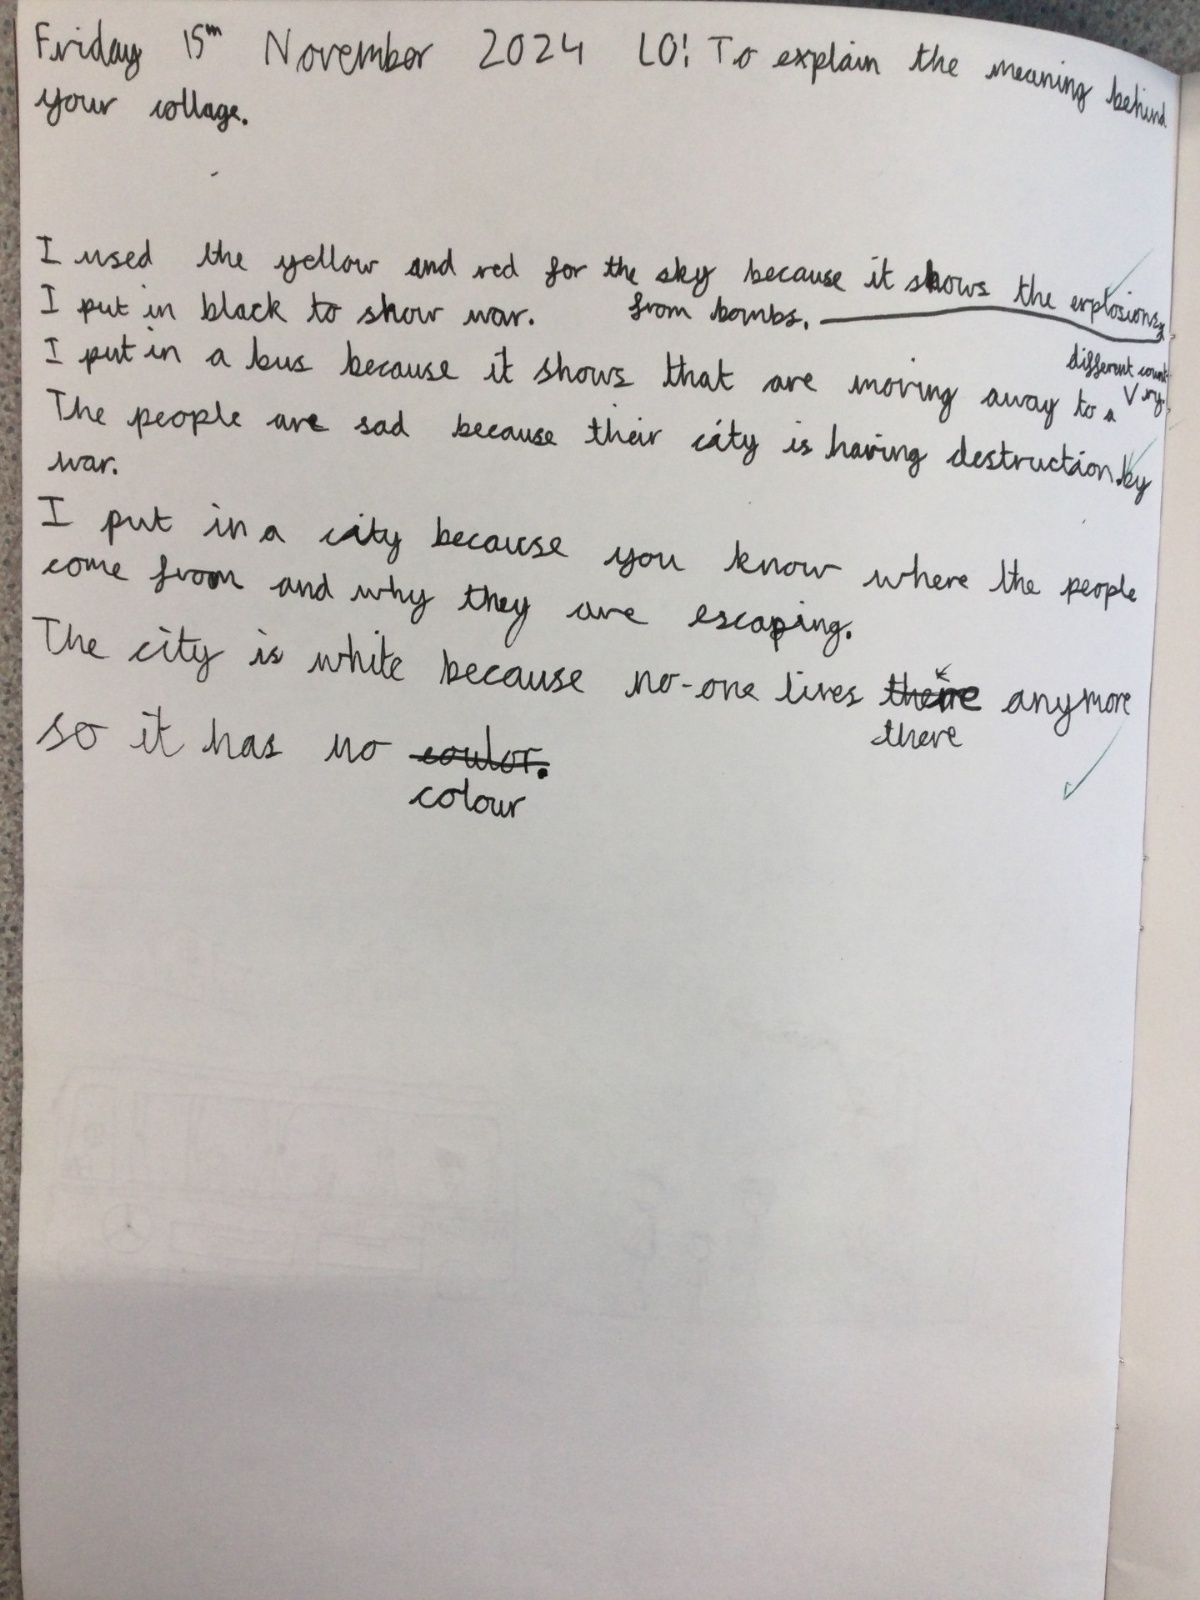 Friday 15th November 2024 LO! To explain the meaning behind
your collage.
I used the yellow and red for the sky because it shows the explosions
from bombs.
I put in black to show war.
I put in a bus because it shows that are moving away to a different country.
The people are sad because their city is having destruction by
war.
I put in a city because you know where the people
come from and why they are escaping.
The city is white because no-one lives there anymore
there
so it has no coulor.
colour